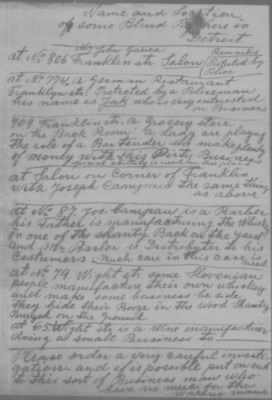 Name and Location
of some Blind         here in
Detroit
Mr John            Remarks
at No 806 Franklin str. Salon Protected by
Police
at No 774, a German Restaurant
Franklyn str. Protected by a Policeman
his name is Jack who is very interested
on Business
709 Franklin str. a Grocery store
on the Back Room a lady are playing
the role of a Bar Tender she make plenty
of money with this Dirty Business
at Salon on Corner of Franklin
with Joseph Campau the same thing
as above
at No 87 Jos. Campau is a Barber
his Father is manufacturing the Whisk
in one of the shanty Back on the Yard
and Mr Barber is Distributer to his
Costumers Much care in this case
at No 79 Wight str. some Slovenian
people manufacture their own whiskey
and make some business be side
they hide their Booze in the wood Shanty
on the Ground
at 65 Wight str is a Wine manufacturer
doing a small Bussiness to
Please order a very careful investi-
gation and if is possible put an end
to this sort of Business man who
have no mercy for the